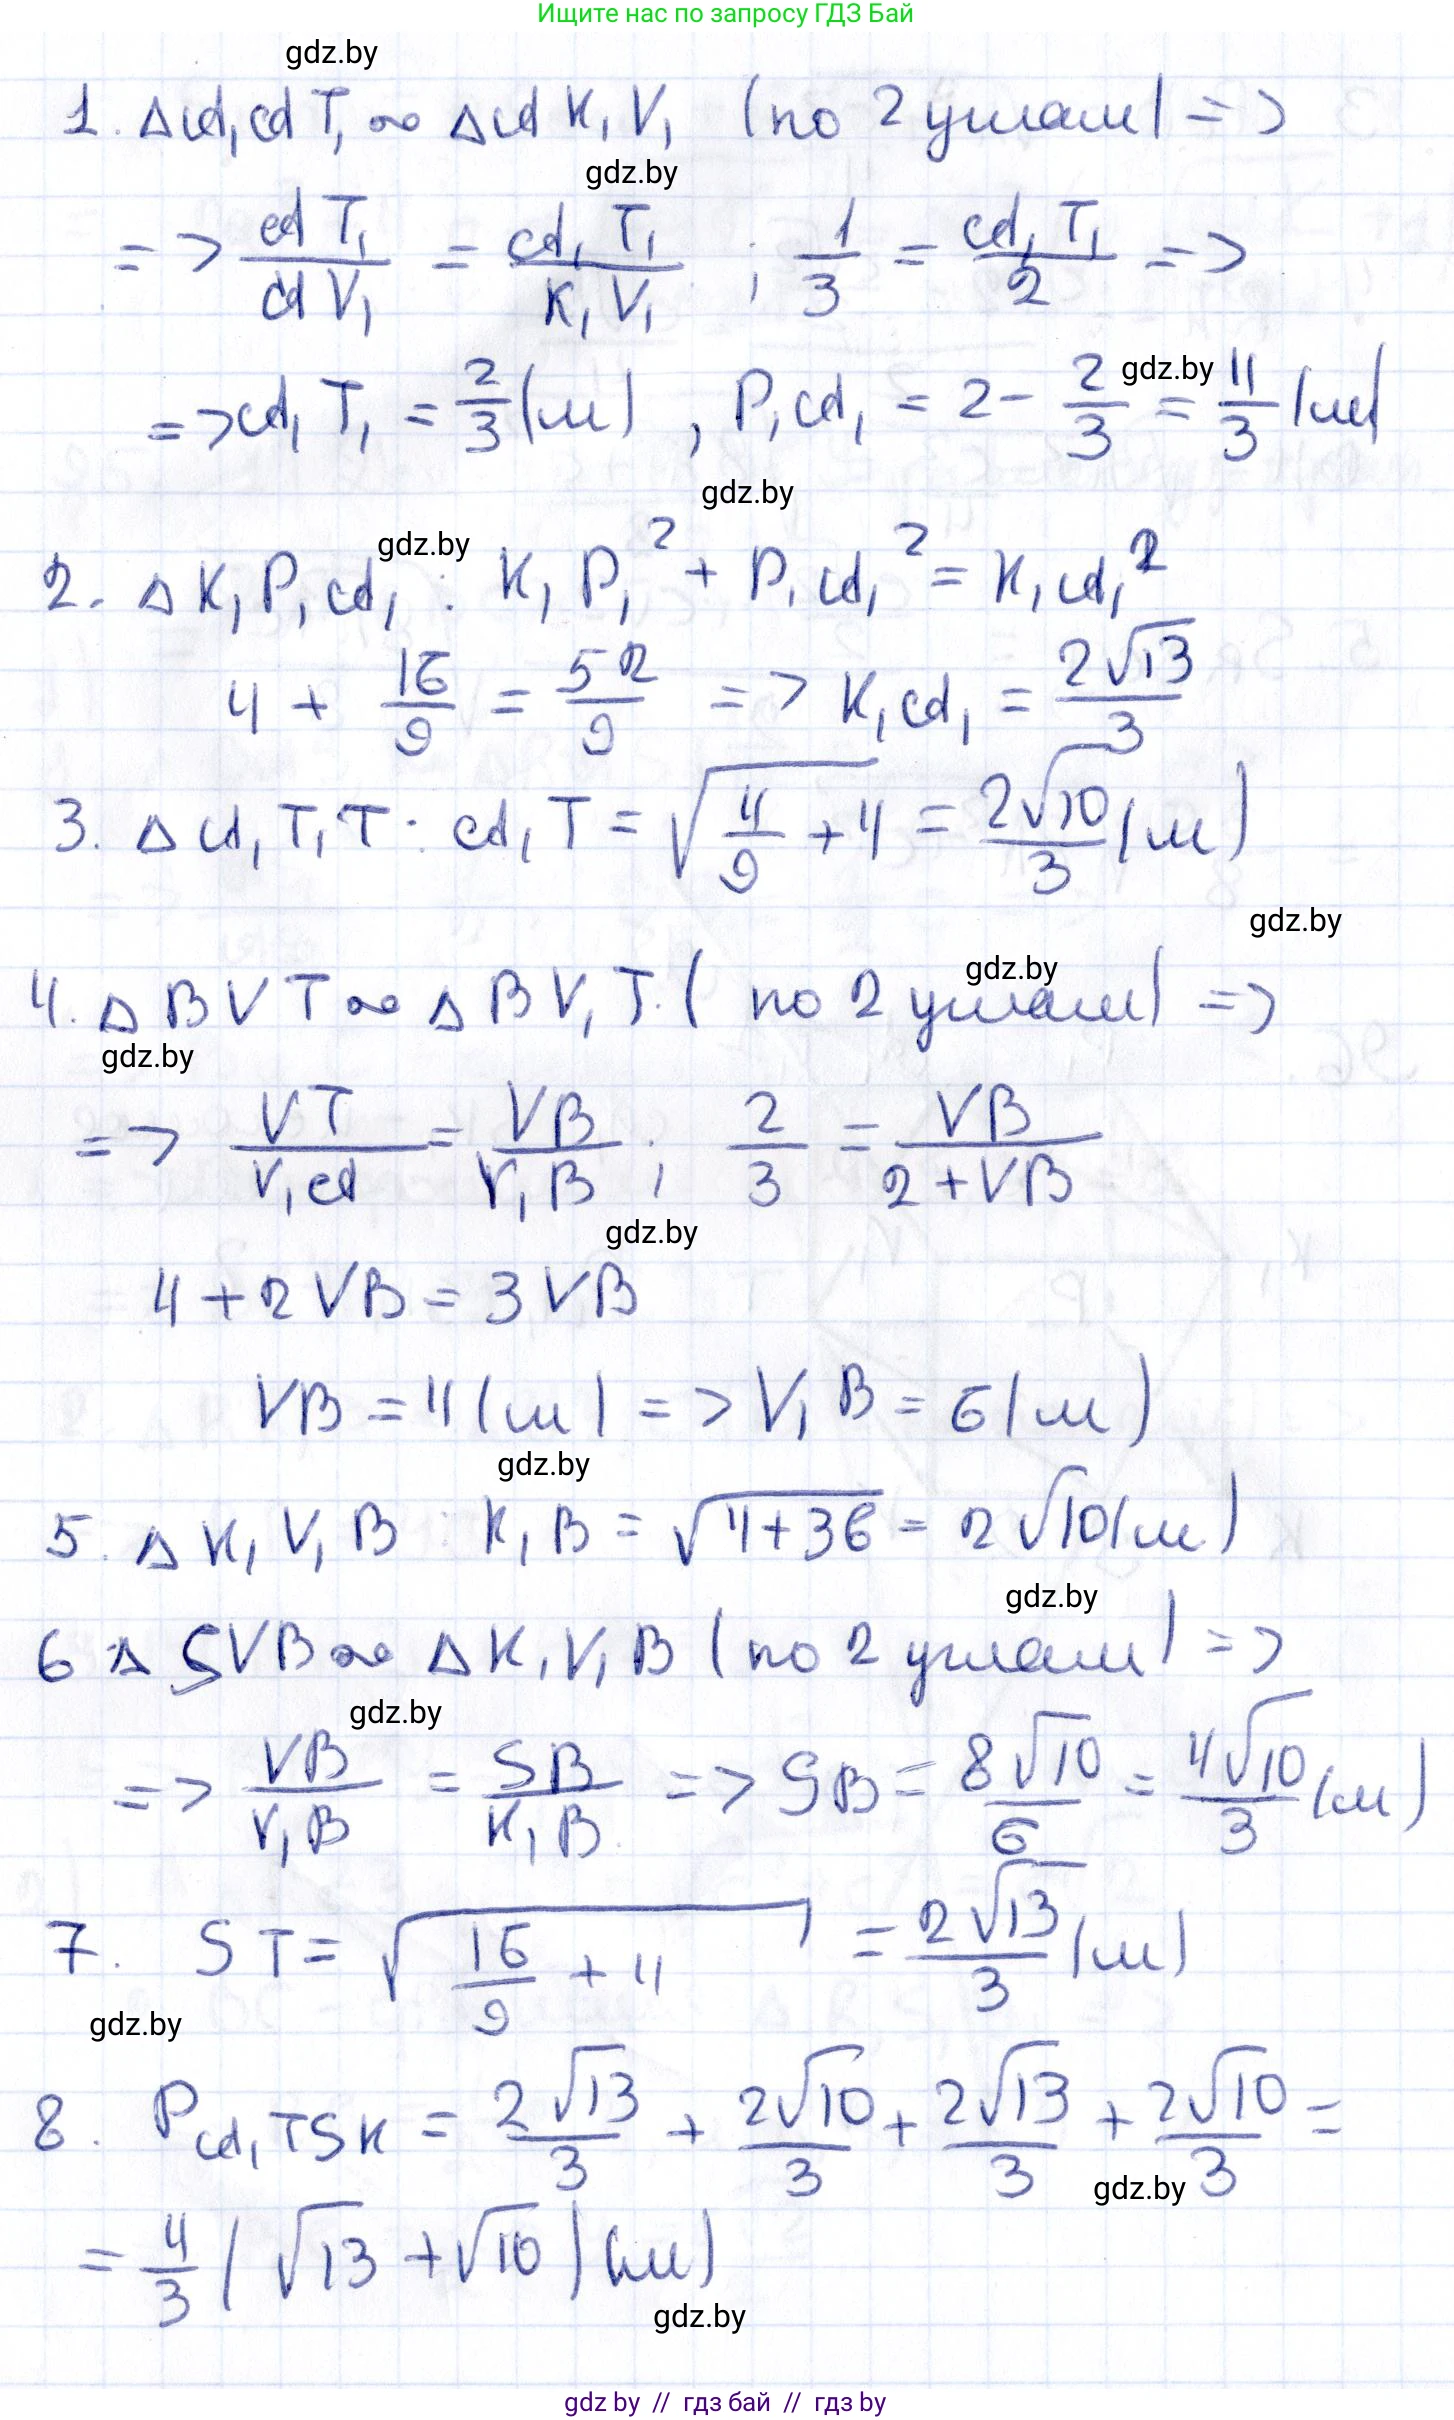 Ищите нас по запросу ГДЗ Бай
gdz.by
1. Δ cd₁ cd T₁ ∞ Δ cd K₁ V₁ (по 2 углам) =>
gdz.by
=> cd T₁ / cd V₁ = cd₁ T₁ / K₁ V₁ ; 1/3 = cd₁ T₁ / 2 =>
=> cd₁ T₁ = 2/3 (м) , P₁ cd₁ = 2 - 2/3 = 4/3 (м)
gdz.by
gdz.by
gdz.by
2. Δ K₁ P₁ cd₁ : K₁ P₁² + P₁ cd₁² = K₁ cd₁²
4 + 16/9 = 52/9 => K₁ cd₁ = 2√13/3
3. Δ cd₁ T₁ T : cd₁ T = √(4/9 + 4) = 2√10/3 (м)
gdz.by
gdz.by
4. Δ B V T ∞ Δ B V₁ T. (по 2 углам) =>
gdz.by
=> VT / V₁ cd = VB / V₁ B ; 2/3 = VB / 2 + VB
gdz.by
4 + 2 VB = 3 VB
VB = 4 (м) => V₁ B = 6 (м)
gdz.by
5. Δ K₁ V₁ B : K₁ B = √(4 + 36) = 2√10 (м)
gdz.by
6 Δ SVB ∞ Δ K₁ V₁ B (по 2 углам) =>
gdz.by
=> VB / V₁ B = SB / K₁ B => SB = 8√10/6 = 4√10/3 (м)
7. ST = √(16/9 + 4) = 2√13/3 (м)
gdz.by
8. P cd₁ TSK = 2√13/3 + 2√10/3 + 2√13/3 + 2√10/3 =
gdz.by
= 4/3 (√13 + √10) (м)
gdz.by
gdz by // гдз бай // гдз by